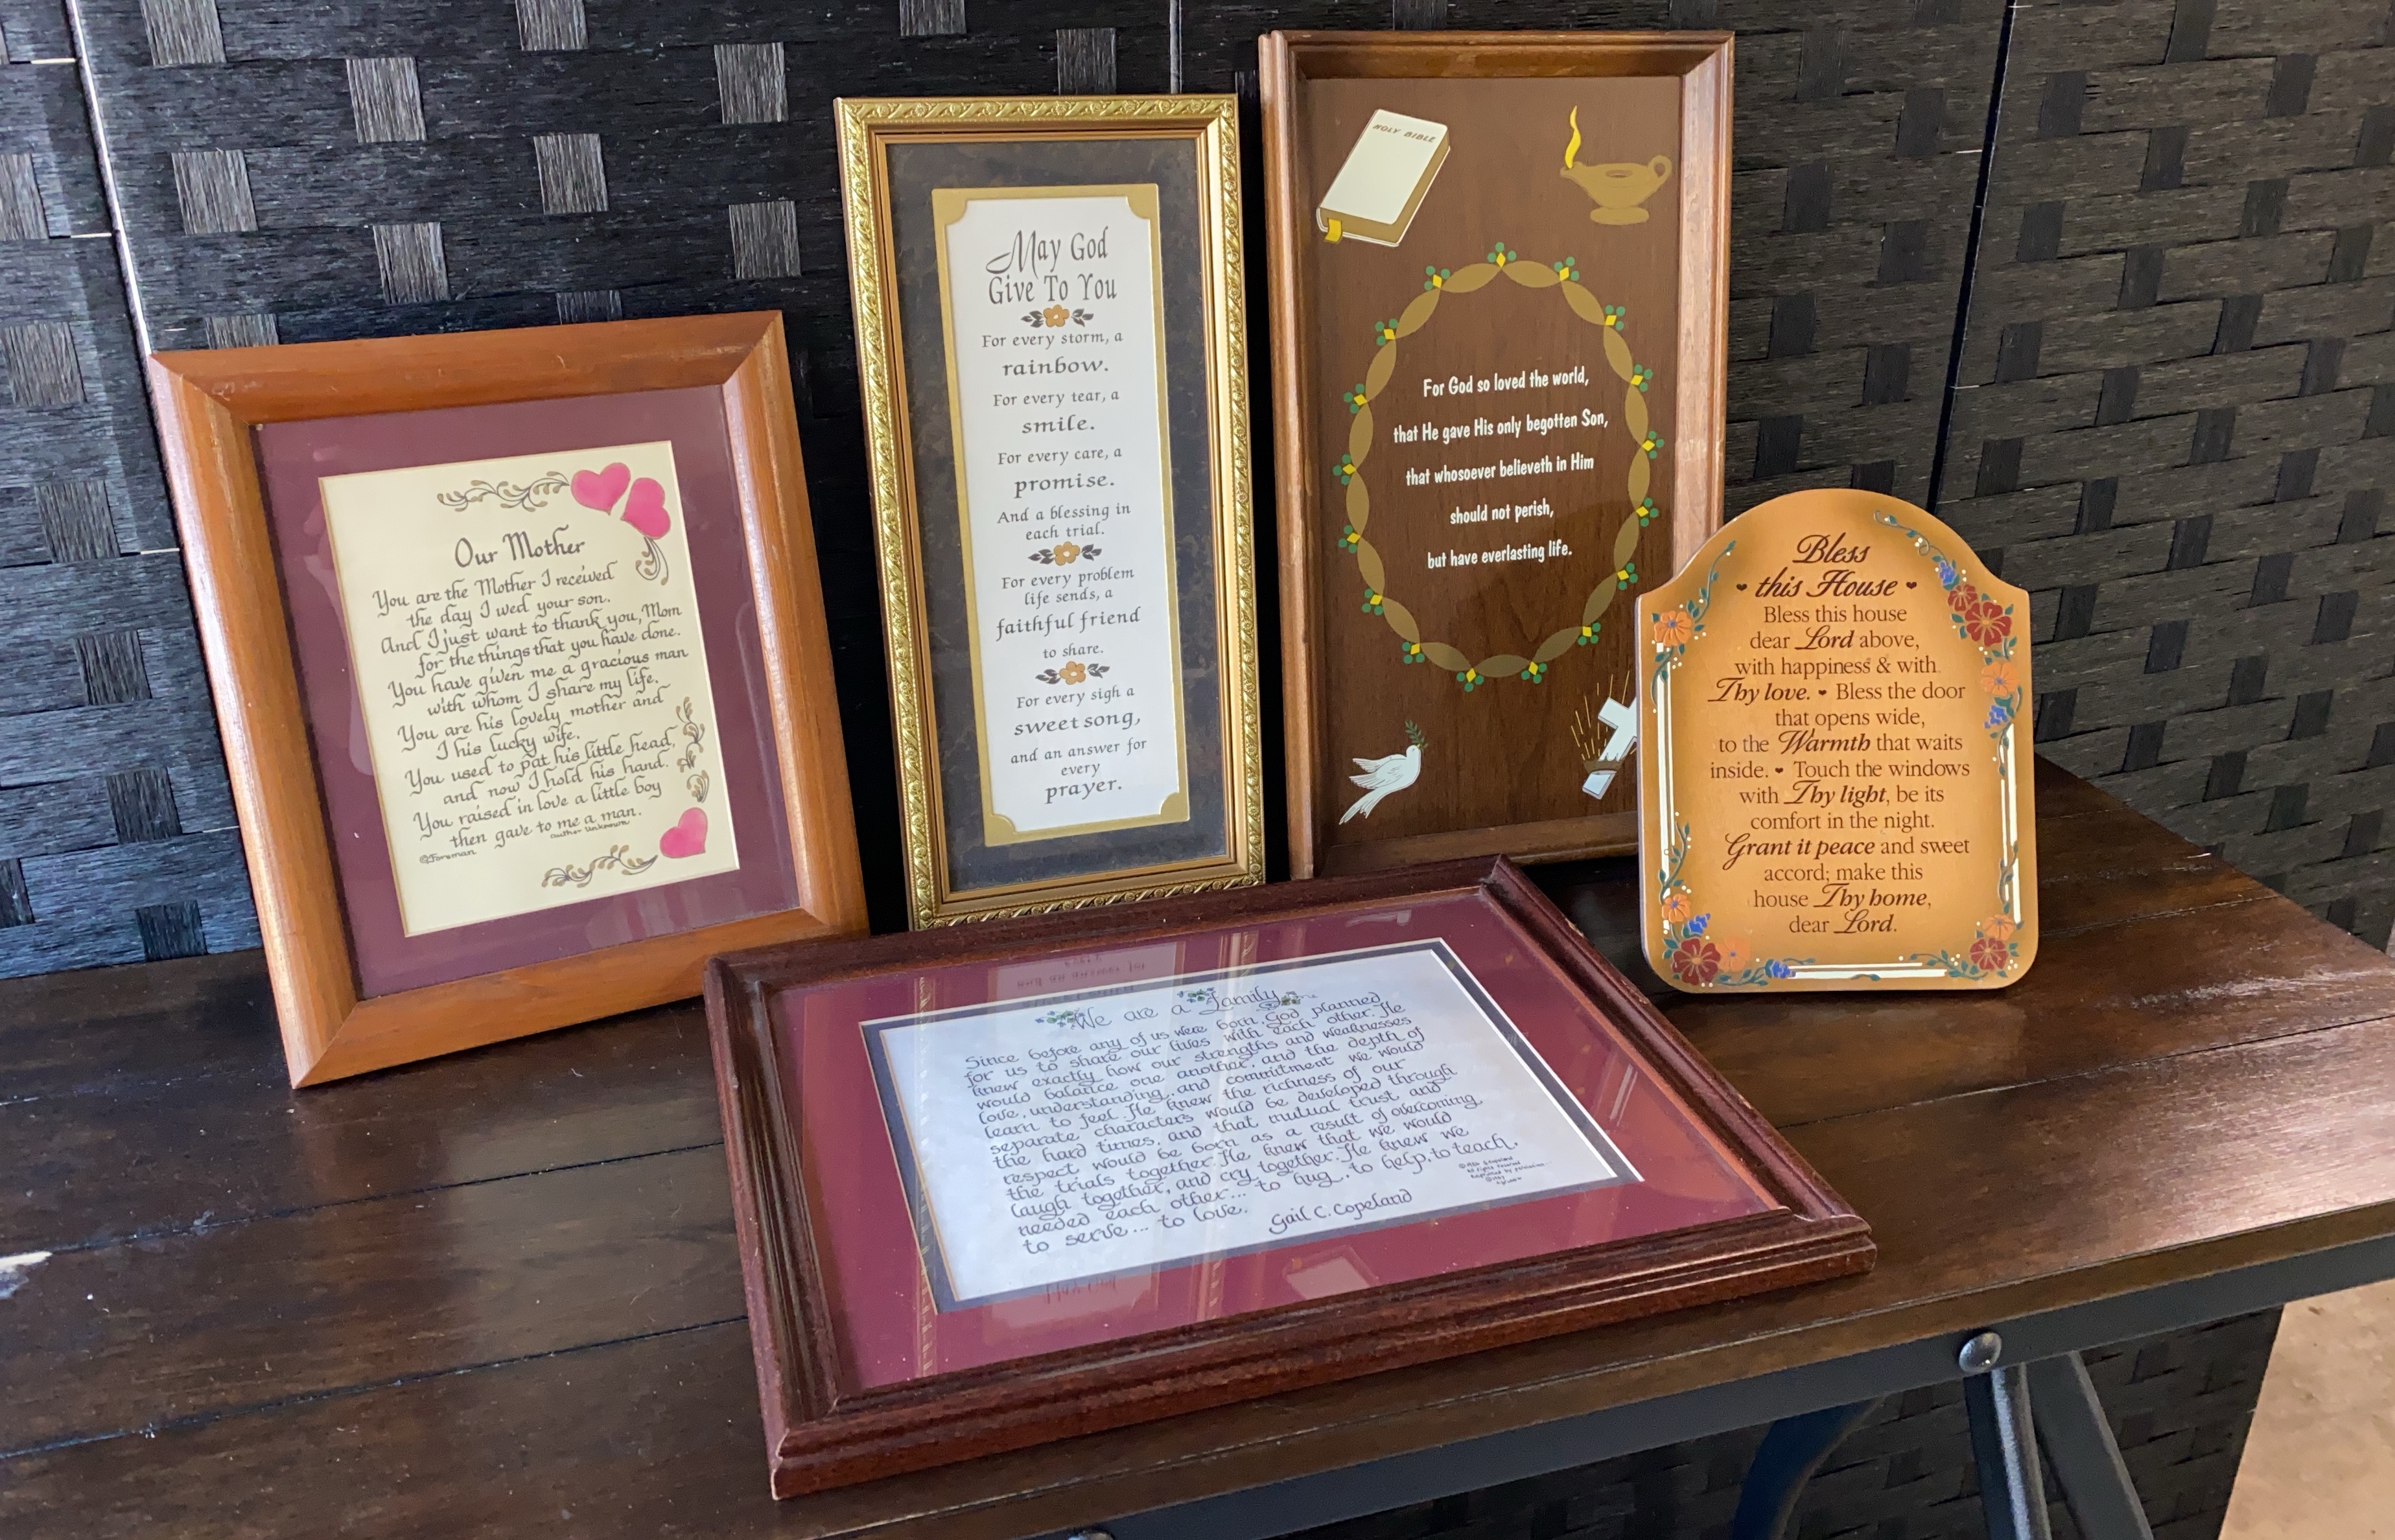 Our Mother
You are the Mother I received
the day I wed your son.
And I just want to thank you, Mom
for the things that you have done.
You have given me a gracious man
with whom I share my life.
You are his lovely mother and
I his lucky wife.
You used to pat his little head,
and now I hold his hand.
You raised in love a little boy
then gave to me a man.
author unknown
© Foreman
May God
Give To You
For every storm, a
rainbow.
For every tear, a
smile.
For every care, a
promise.
And a blessing in
each trial.
For every problem
life sends, a
faithful friend
to share.
For every sigh a
sweet song,
and an answer for
every
prayer.
HOLY BIBLE
For God so loved the world,
that He gave His only begotten Son,
that whosoever believeth in Him
should not perish,
but have everlasting life.
Bless
this House
Bless this house
dear Lord above,
with happiness & with
Thy love. • Bless the door
that opens wide,
to the Warmth that waits
inside. • Touch the windows
with Thy light, be its
comfort in the night.
Grant it peace and sweet
accord; make this
house Thy home,
dear Lord.
We are a Family
Since before any of us were born God planned
for us to share our lives with each other. He
knew exactly how our strengths and weaknesses
would balance one another, and the depth of
love, understanding, and commitment we would
learn to feel. He knew the richness of our
separate characters would be developed through
the hard times, and that mutual trust and
respect would be born as a result of overcoming
the trials together. He knew that we would
laugh together, and cry together. He knew we
needed each other... to hug, to help, to teach,
to serve... to love.
Gail C. Copeland